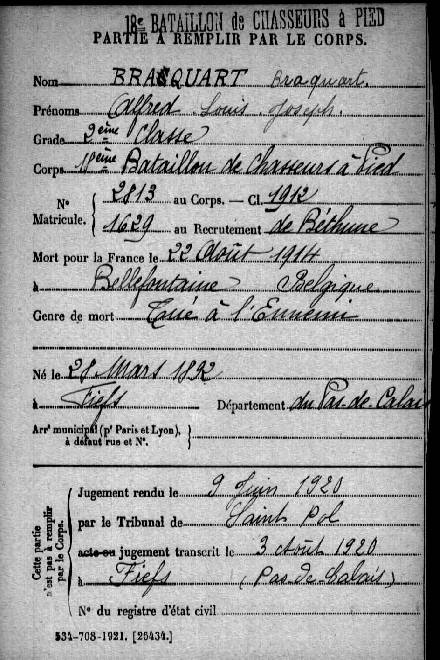 18e BATAILLON de CHASSEURS à PIED
PARTIE À REMPLIR PAR LE CORPS.
Nom BRAQUART Braquart.
Prénoms Alfred Louis Joseph.
Grade 2ème Classe
Corps 18ème Bataillon de Chasseurs à Pied
N° 2813 au Corps. — Cl. 1912
Matricule. 1629 au Recrutement de Béthune
Mort pour la France le 22 Août 1914
à Bellefontaine Belgique
Genre de mort Tué à l'Ennemi
Né le 28 Mars 1892
à Fiefs Département du Pas-de-Calais
Arrt municipal (pr Paris et Lyon),
à défaut rue et N°.
Cette partie
n'est pas à remplir
par le Corps.
Jugement rendu le 9 Juin 1920
par le Tribunal de Saint Pol
acte ou jugement transcrit le 3 Août 1920
à Fiefs (Pas de Calais)
N° du registre d'état civil
534-708-1921. [26434.]